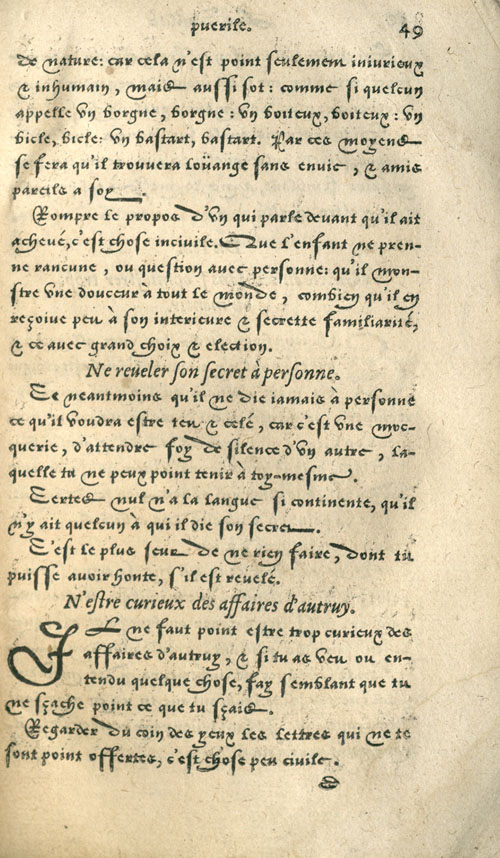 puerile. 49
de nature: car cela n'est point seulement iniurieux
& inhumain, mais aussi sot: comme si quelcun
appelle vn borgne, borgne: vn boiteux, boiteux: vn
bicle, bicle: vn bastart, bastart. Par ces moyens
se fera qu'il trouuera loüange sans enuie, & amis
pareils a soy.
Rompre le propos d'vn qui parle deuant qu'il ait
acheué, c'est chose inciuile. Que l'enfant ne pren-
ne rancune, ou question auec personne: qu'il mon-
stre vne douceur à tout le monde, combien qu'il en
reçoiue peu à son interieure & secrette familiarité,
& ce auec grand choix & election.
Ne reueler son secret à personne.
Ce neantmoins qu'il ne die iamais à personne
ce qu'il voudra estre teu & celé, car c'est vne moc-
querie, d'attendre foy de silence d'vn autre, la-
quelle tu ne peux point tenir à toy-mesme.
Certes nul n'a la langue si continente, qu'il
n'y ait quelcun à qui il die son secret.
C'est le plus seur de ne rien faire, dont tu
puisse auoir honte, s'il est reuelé.
N'estre curieux des affaires d'autruy.
Il ne faut point estre trop curieux des
affaires d'autruy, & si tu as veu ou en-
tendu quelque chose, fay semblant que tu
ne sçache point ce que tu sçais.
Regarder du coin des yeux les lettres qui ne te
sont point offertes, c'est chose peu ciuile.